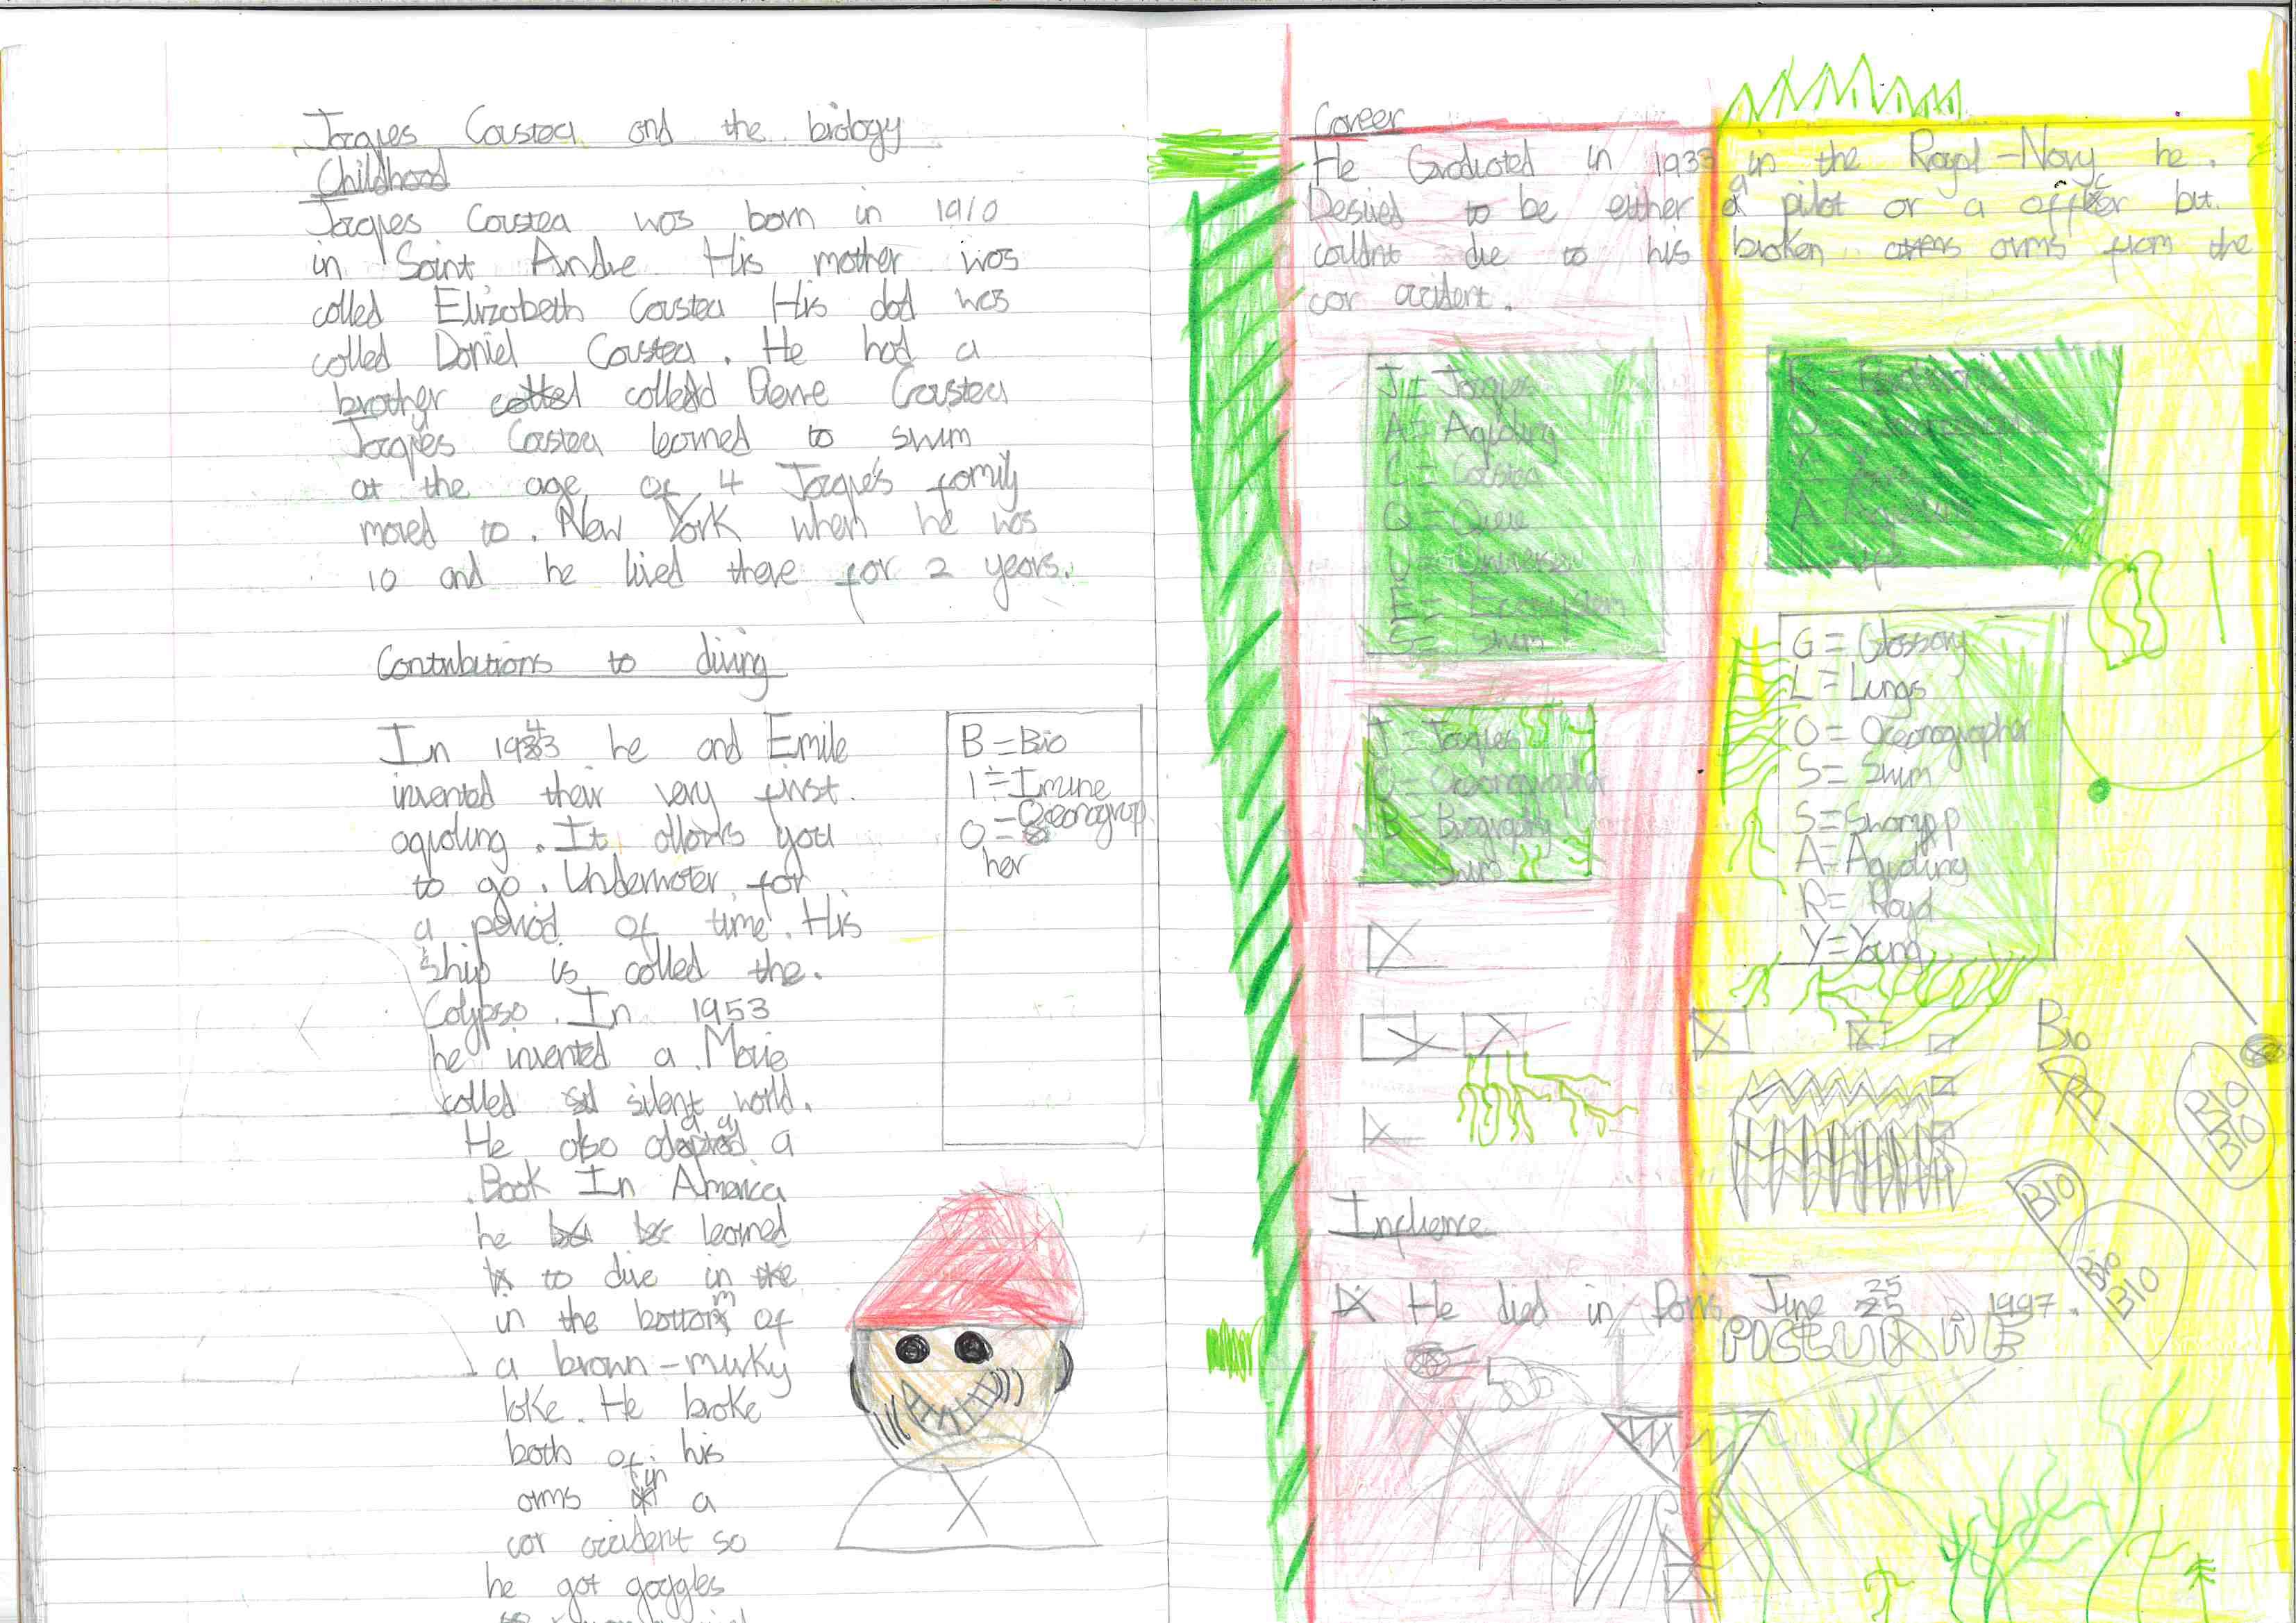 Jacques Coustea and the biology
Childhood
Jacques Coustea was born in 1910
in Saint Andre His mother was
called Elizabeth Coustea His dad was
called Daniel Coustea. He had a
brother called Pierre Coustea
Jacques Coustea learned to swim
at the age of 4 Jacque's family
moved to. New York when he was
10 and he lived there for 2 years.
Contributions to diving
In 1943 he and Emile
invented their very first.
aqualung. It allows you
to go. Underwater for
a period of time. His
ship is called the.
Calypso. In 1953
he invented a Movie
called silent world.
He also a
Book In America
he learned
to dive in
in the bottom of
a brown-murky
lake. He broke
both of his
arms in a
car accident so
he got goggles
B = Bio
I = Imune
O = Oceanograp
her
Career
He Graduated in 1933 in the Royal-Navy he.
Desired to be either a pilot or a officer but.
couldnt due to his broken arms from the
car accident.
J = Jacques
A = Aqualung
C = Coustea
Q = Queue
U = Universe
E = Ecosystem
S = Swim
J = Jacques
O = Oceanographer
B = Biography
Swim
A = Aqualung
L = Life
G = Glossary
L = Lungs
O = Oceanographer
S = Swim
S =
A = Aqualung
R = Royal
Y = Young
Bio
BIO
BIO
BIO
BIO
BIO
BIO
Influence
He died in Paris June 25 1997.